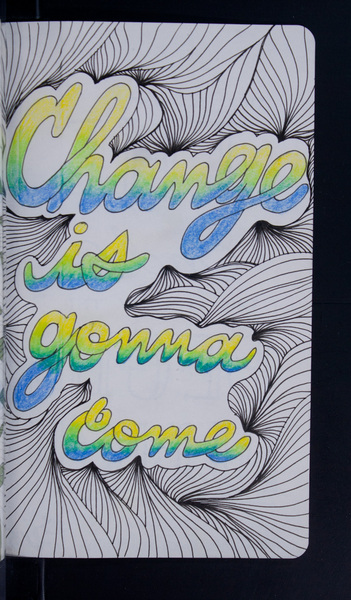 Change
is
gonna
come